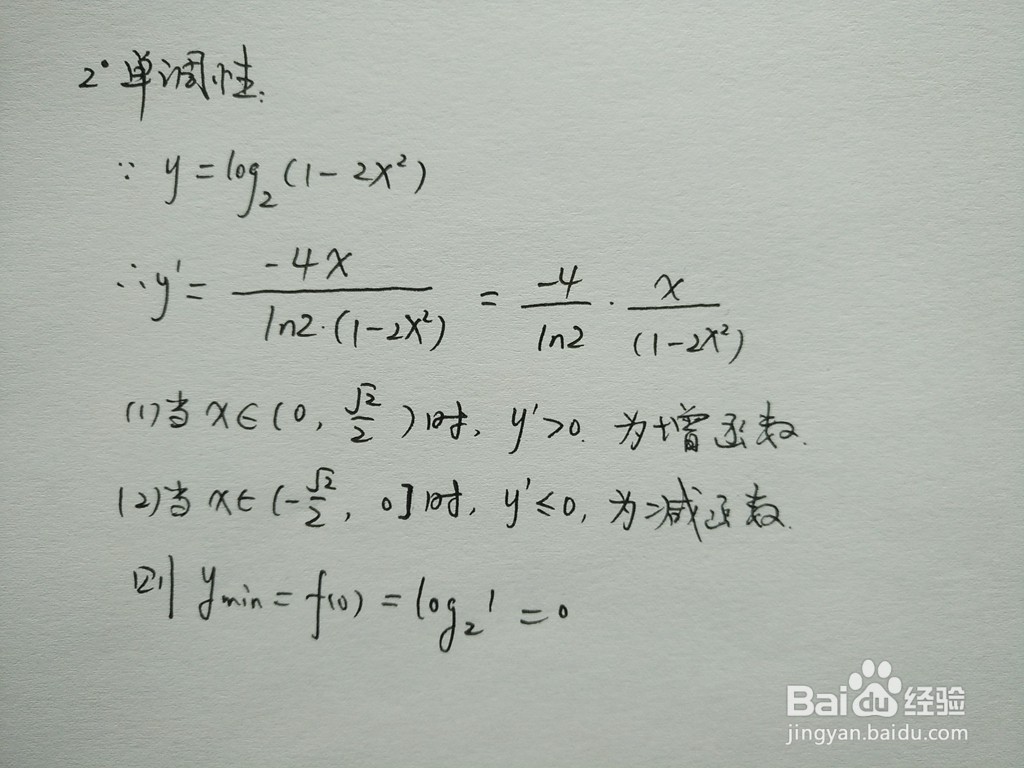 2° 单调性:
∵ y = log₂(1-2x²)
∴ y' = -4x / ln2·(1-2x²) = -4/ln2 · x/(1-2x²)
(1)当 x∈(0, √2/2)时, y'>0. 为增函数.
(2)当 x∈(-√2/2, 0]时, y'≤0, 为减函数.
则 ymin = f(0) = log₂1 = 0
Bai du 经验
jingyan.baidu.com